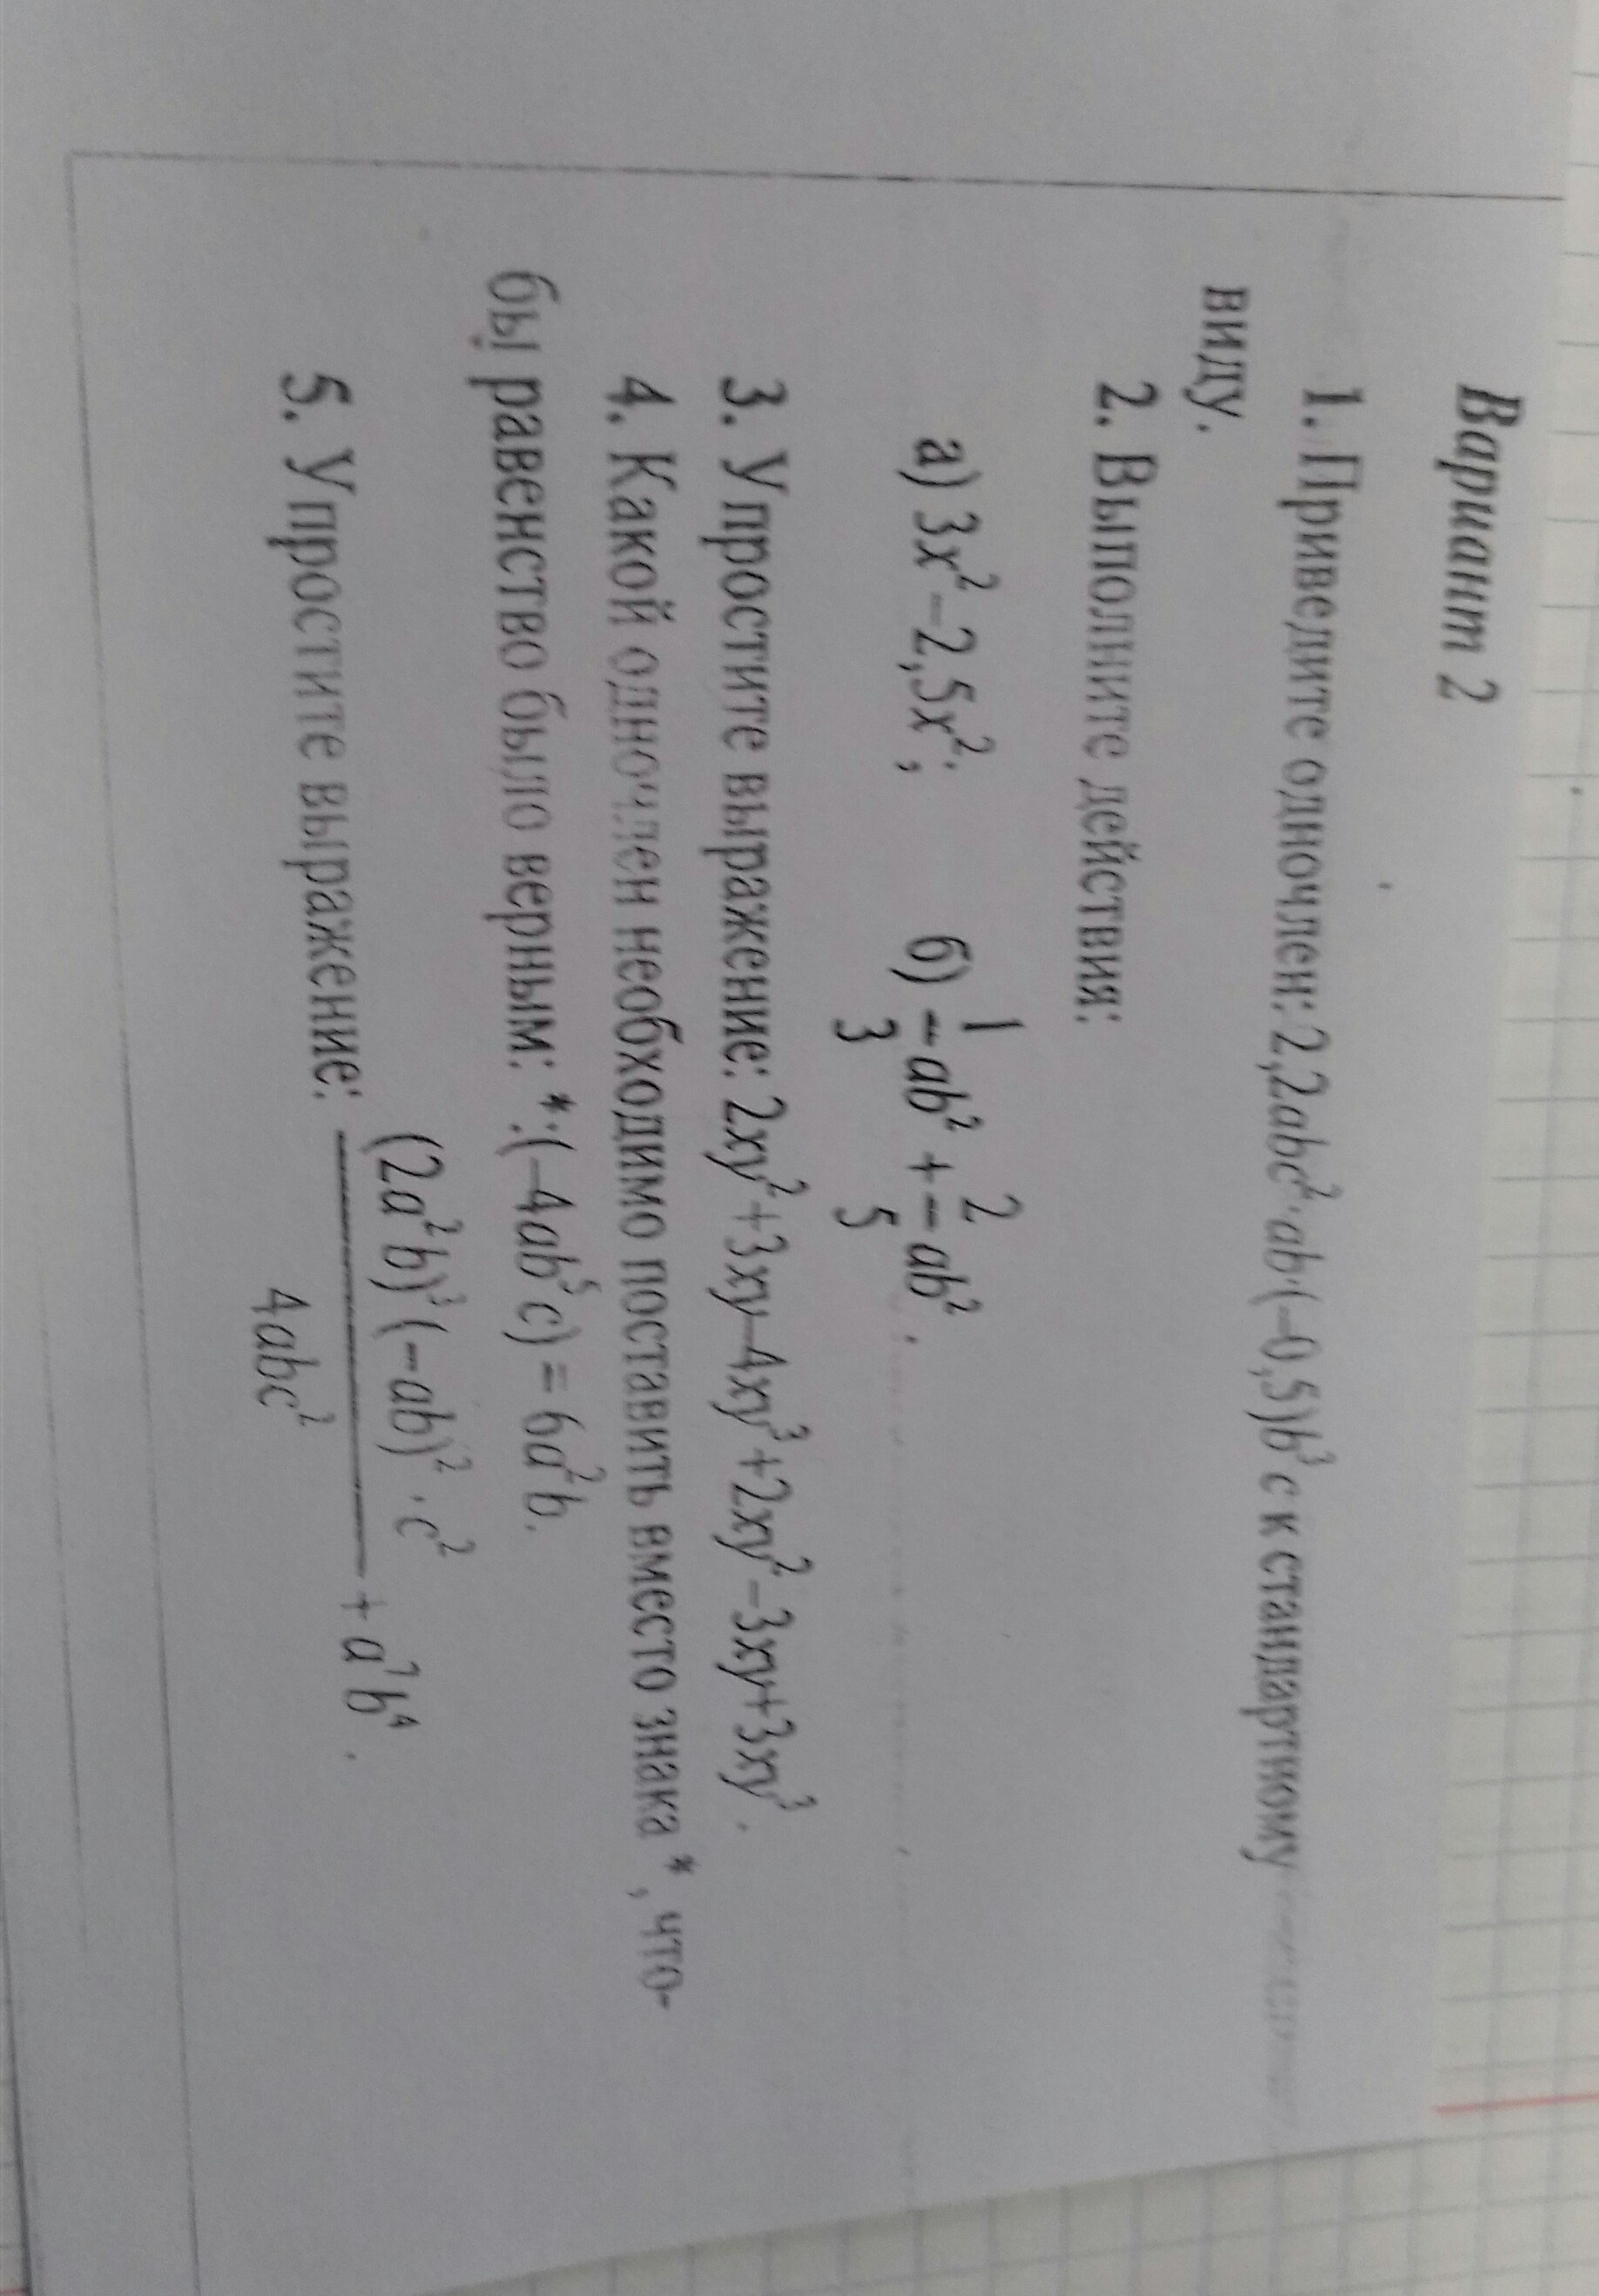 Вариант 2
1. Приведите одночлен: 2,2abc²·ab·(–0,5)b³c к стандартному
виду.
2. Выполните действия:
а) 3x²–2,5x²; б) 1/3 ab² + 2/5 ab².
3. Упростите выражение: 2xy²+3xy–4xy³+2xy²–3xy+3xy³.
4. Какой одночлен необходимо поставить вместо знака *, что-
бы равенство было верным: *:(–4ab⁵c) = 6a²b.
5. Упростите выражение: (2a²b)³(–ab)²·c² / 4abc² + a⁷b⁴.